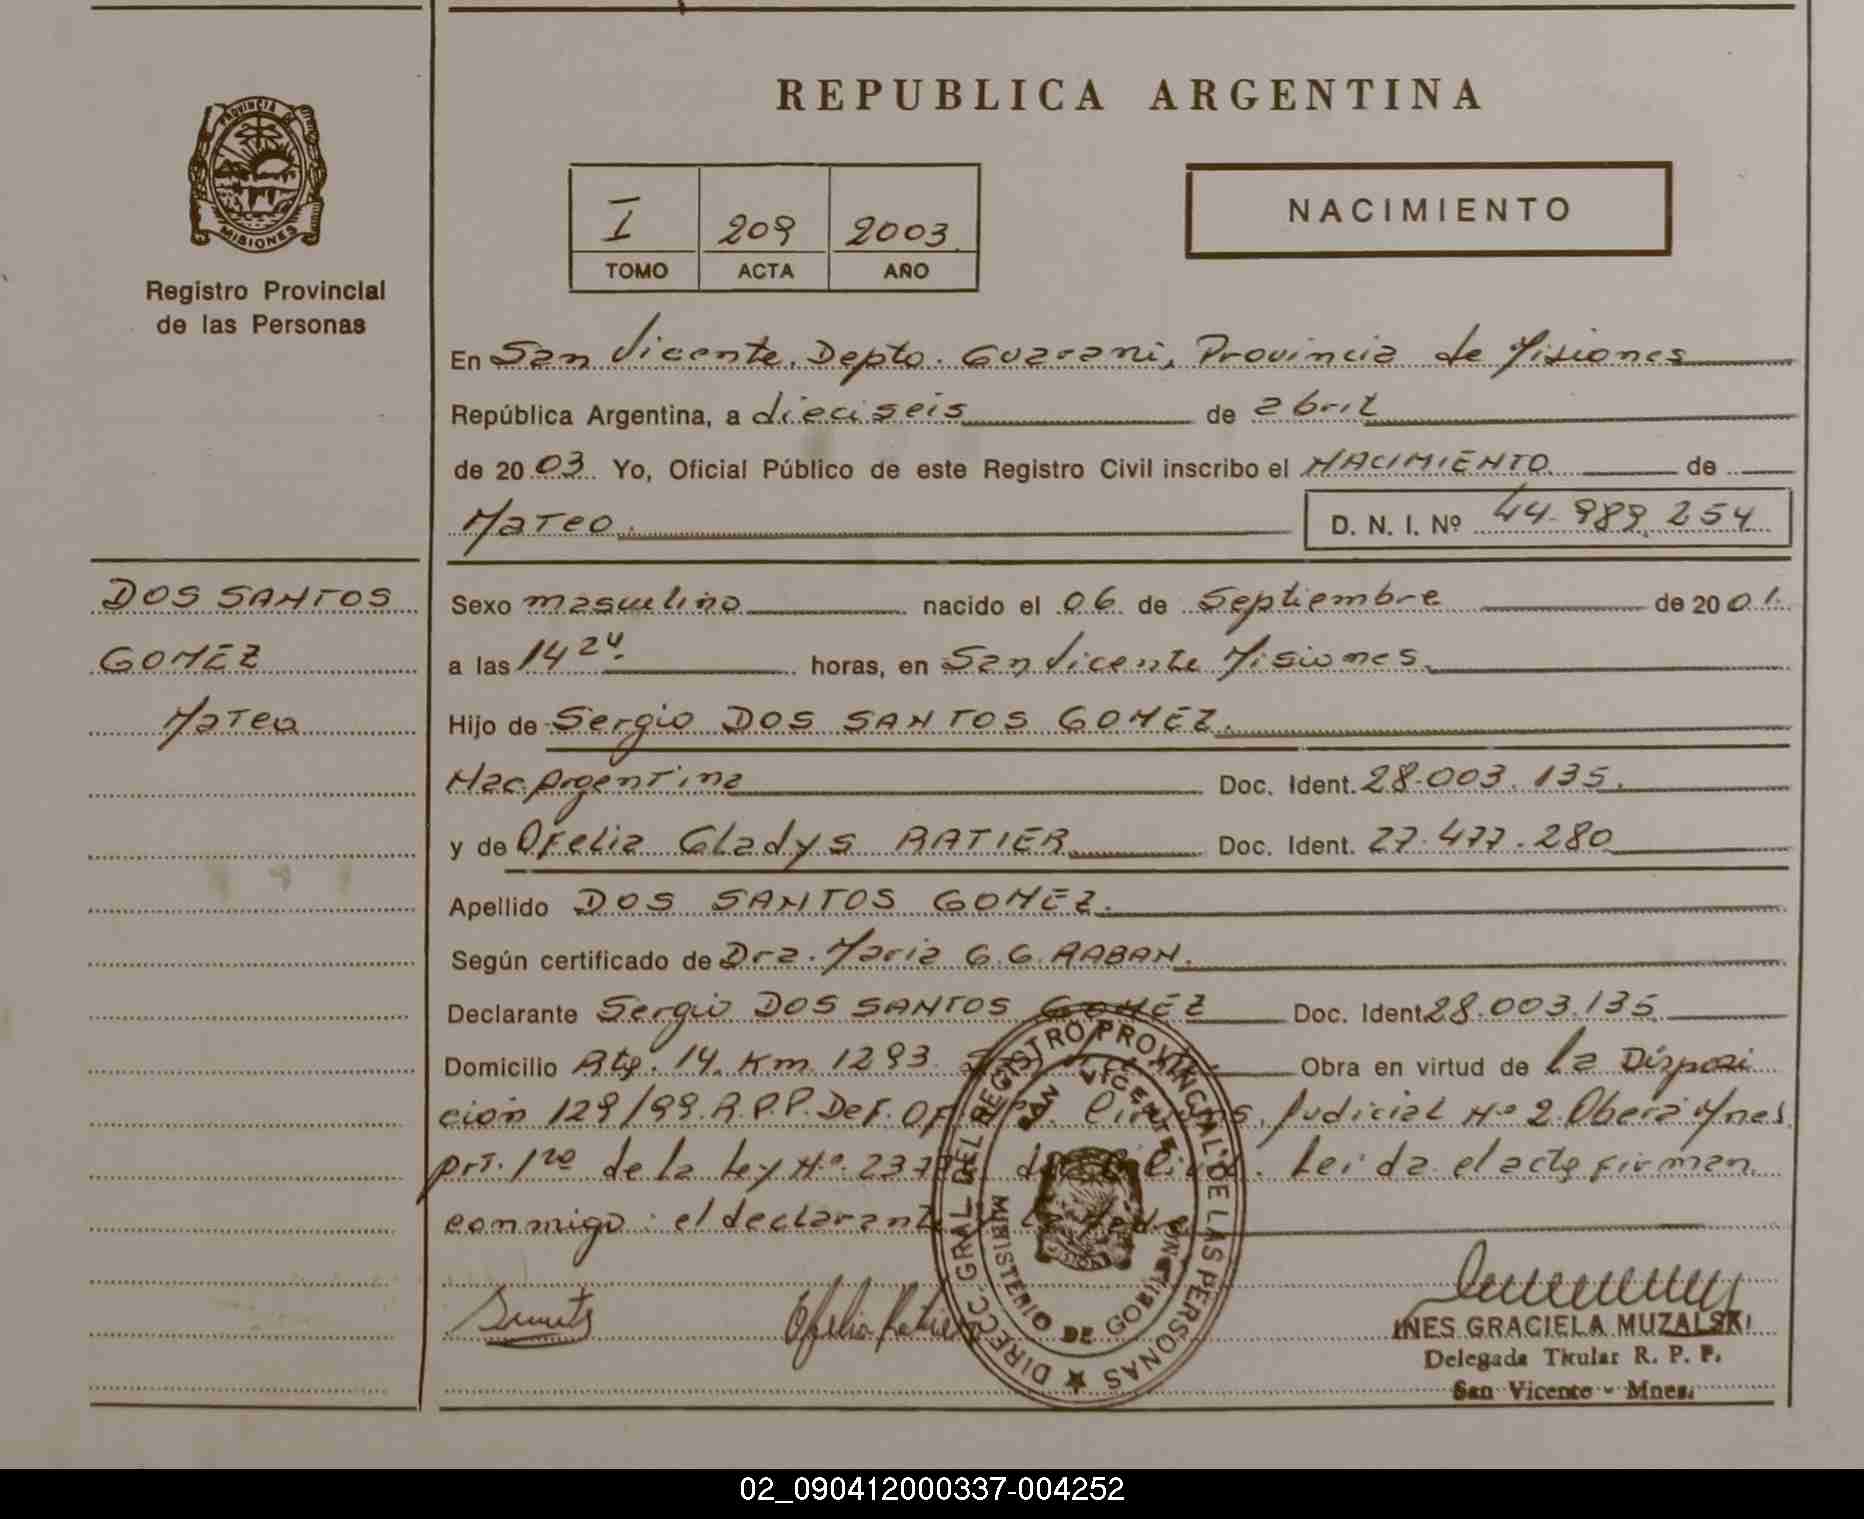 PROVINCIA DE
MISIONES
Registro Provincial
de las Personas
REPUBLICA ARGENTINA
I 209 2003
TOMO ACTA AÑO
NACIMIENTO
En San Vicente. Depto. Guarani, Provincia de Misiones
República Argentina, a dieciseis de abril
de 2003. Yo, Oficial Público de este Registro Civil inscribo el NACIMIENTO de
Mateo. D. N. I. Nº 44.989.254
DOS SANTOS
GOMEZ
Mateo
Sexo masculino nacido el 06 de Septiembre de 2001.
a las 14 24 horas, en San Vicente Misiones.
Hijo de Sergio DOS SANTOS GOMEZ.
Nac. Argentina Doc. Ident. 28.003.135.
y de Ofelia Gladys RATIER Doc. Ident. 27.477.280
Apellido DOS SANTOS GOMEZ.
Según certificado de Dra. Maria G.G. RABAN.
Declarante Sergio DOS SANTOS GOMEZ Doc. Ident. 28.003.135
Domicilio Rta. 14. Km 1293. Obra en virtud de la Disposi
cion 129/99.R.P.P. Def. Of. Circuns. Judicial Nº 2 Obera Mnes.
Art. 1ro de la Ley Nº Leida el acta firman
conmigo: el declarante y la madre
Ofelia Ratier
DIREC. GRAL. DEL REGISTRO PROVINCIAL DE LAS PERSONAS
SAN VICENTE
MINISTERIO DE GOBIERNO
INES GRACIELA MUZALSKI
Delegada Titular R. P. P.
San Vicente - Mnes.
02_090412000337-004252